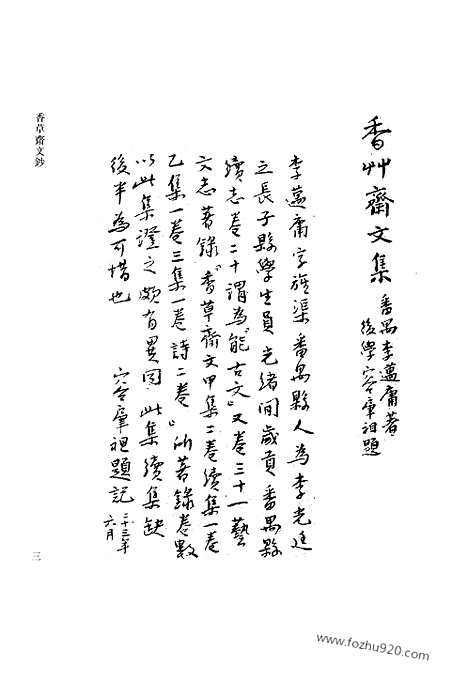 香艸齋文集
番禺李蘧庸著
後學容肇祖題
李蘧庸字旋渠番禺縣人為李光廷
之長子縣學生員光緒間歲貢番禺縣
續志卷二十謂為「能古文」又卷三十一藝
文志著錄「香草齋文甲集二卷續集一卷
乙集一卷三集一卷詩二卷」所著錄卷數
以此集證之頗有異同此集續集缺
後半為可惜也
容肇祖題記
二十三年
六月
香草齋文鈔
三
www.fozhu920.com